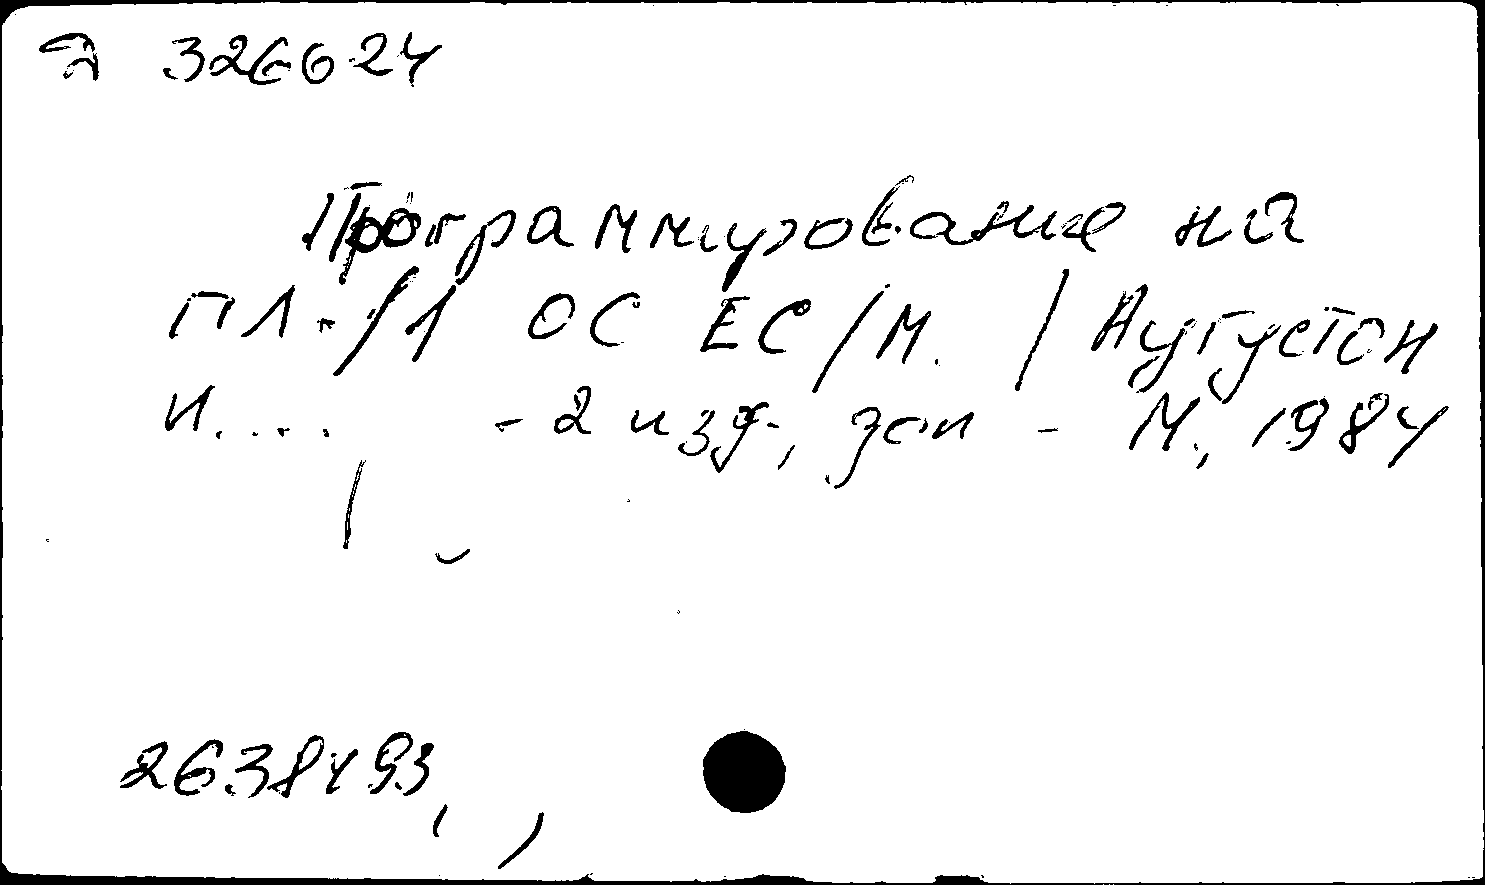 Д 326624
Программирование на
ПЛ-/1 ОС ЕС/М. / Аугустон
И.... - 2 изд., доп - М., 1984
2638493,